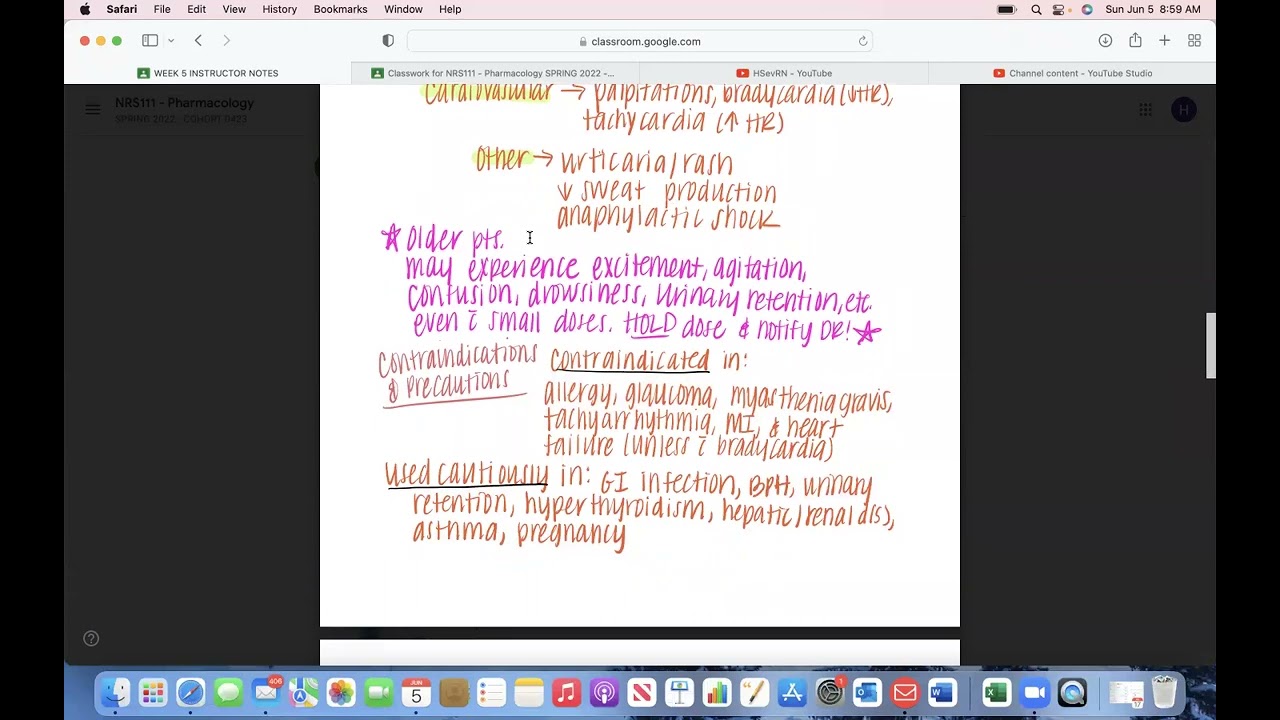 Safari File Edit View History Bookmarks Window Help Sun Jun 5 8:59 AM
classroom.google.com
WEEK 5 INSTRUCTOR NOTES
Classwork for NRS111 - Pharmacology SPRING 2022 -...
HSevRN - YouTube
Channel content - YouTube Studio
NRS111 - Pharmacology
SPRING 2022, COHORT 0423
H
Cardiovascular → palpitations, bradycardia (↓HR),
tachycardia (↑ HR)
Other → urticaria/rash
↓ sweat production
anaphylactic shock
☆ Older pts.
may experience excitement, agitation,
confusion, drowsiness, urinary retention, etc.
even c̄ small doses. HOLD dose & notify DR! ☆
Contraindications
& Precautions
Contraindicated in:
allergy, glaucoma, myasthenia gravis,
tachyarrhythmia, MI, & heart
failure (unless c̄ bradycardia)
Used cautiously in: GI infection, BPH, urinary
retention, hyperthyroidism, hepatic/renal d(s),
asthma, pregnancy
?
406
JUN
5
1
17